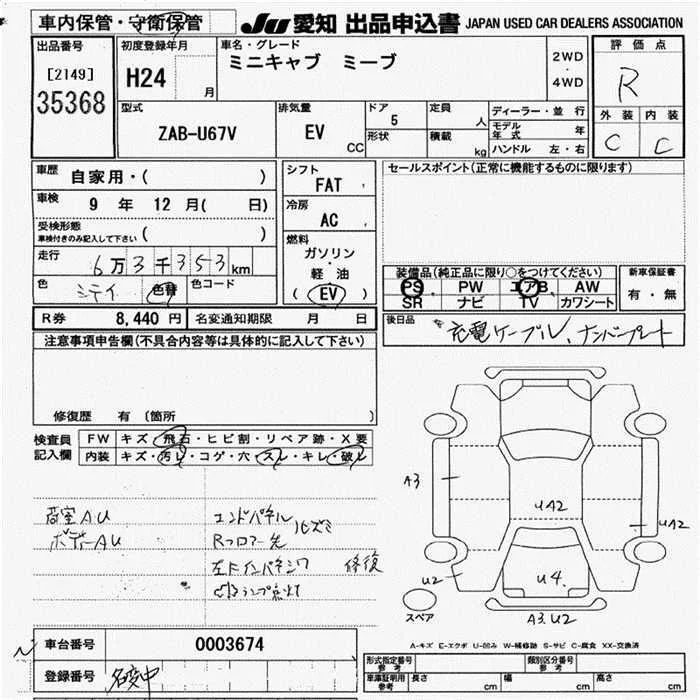 車内保管・守衛保管
JU 愛知 出品申込書 JAPAN USED CAR DEALERS ASSOCIATION
出品番号
[2149]
35368
初度登録年月
H24 月
車名・グレード
ミニキャブ ミーブ
2WD
・
4WD
評価点
R
外装 内装
C C
型式
ZAB-U67V
排気量
EV CC
ドア
5
形状
定員 人
積載 kg
ディーラー・並行
モデル年式 年
ハンドル 左・右
車歴 自家用・( )
車検 9 年 12 月( 日)
受検形態
車検付きのみ記入して下さい ( )
走行 6万3千353km
色 色替 色コード
シフト
FAT
冷房
AC
燃料
ガソリン
・
軽油
( EV )
セールスポイント(正常に機能するものに限ります)
装備品(純正品に限り○をつけてください)
PS PW エアB AW
SR ナビ TV カワシート
新車保証書
有・無
R券 8,440 円 名変通知期限 月 日
後日品 充電ケーブル、ナンバープレート
注意事項申告欄(不具合内容等は具体的に記入して下さい)
修復歴 有 〔箇所 〕
検査員記入欄
FW キズ・飛石・ヒビ割・リペア跡・X要
内装 キズ・汚レ・コゲ・穴・スレ・キレ・破レ
荷室AU
ボデーAU
エンドパネル
Rフロアー先
修復
A3
UA2
UA2
U2
U4.
A3.U2
スペア
A-キズ E-エクボ U-凹み W-補修跡 S-サビ C-腐食 XX-交換済
車台番号 0003674
登録番号 名変中
形式指定番号 参考
類別区分番号 参考
車庫証明用 参考 長さ cm 幅 cm 高さ cm